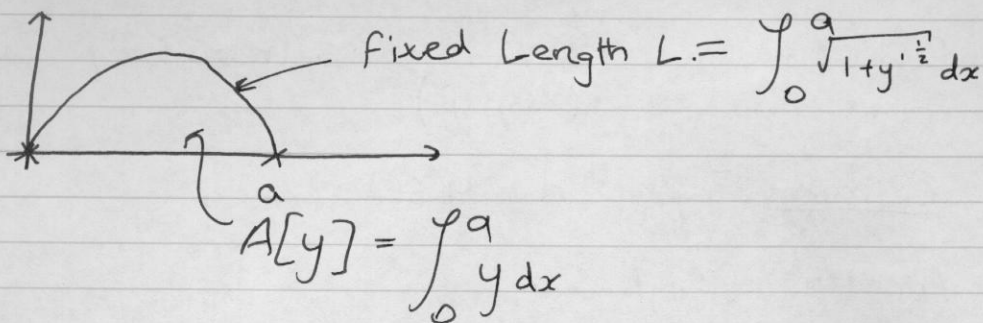 fixed Length L = ∫₀ᵃ √(1+y'^½) dx
a
A[y] = ∫₀ᵃ y dx